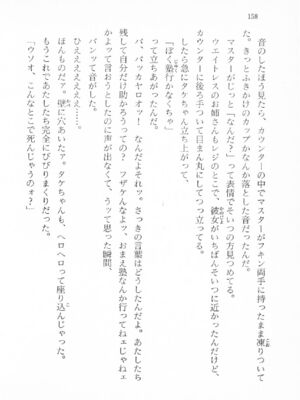 158
音のしたほう見たら、カウンターの中でマスターがフキン両手に持ったまま凍りついて
た。きっとふきかけのカップかなんか落とした音だったんだ。
マスターがじっと「なんだ?」って表情でそいつの方見つめてる。
ウエイトレスのお姉さんもレジのとこで、彼女がいちばんそいつに近かったんだけど、
カウンターに後ろ手ついて目まん丸にしてつっ立ってる。
したら急にタケちゃん立ち上がって、
「ぼく塾行かなくちゃ」
って立ちあがったんだ。
バ、バッカヤロオッ!　なんだよそれッ。さっきの言葉はどうしたんだよ。あたしたち
残して自分だけ助かろうっての?　フザケんなよッ、おまえ塾なんか行ってねェじゃねェ
かよォって言おうとしたのに声が出なくて、うッて思った瞬間、
パンッて音がした。
ひええええええっ……。
ほんものだァ。壁に穴あいたァ。タケちゃんも、ヘロヘロって座り込んじゃった。
もうこれであたしたち完全にびびりまくりだった。
「ウソオ、こんなとこで死んじゃうのォ?」